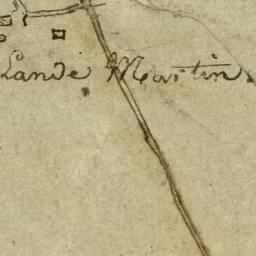 Lande Martin